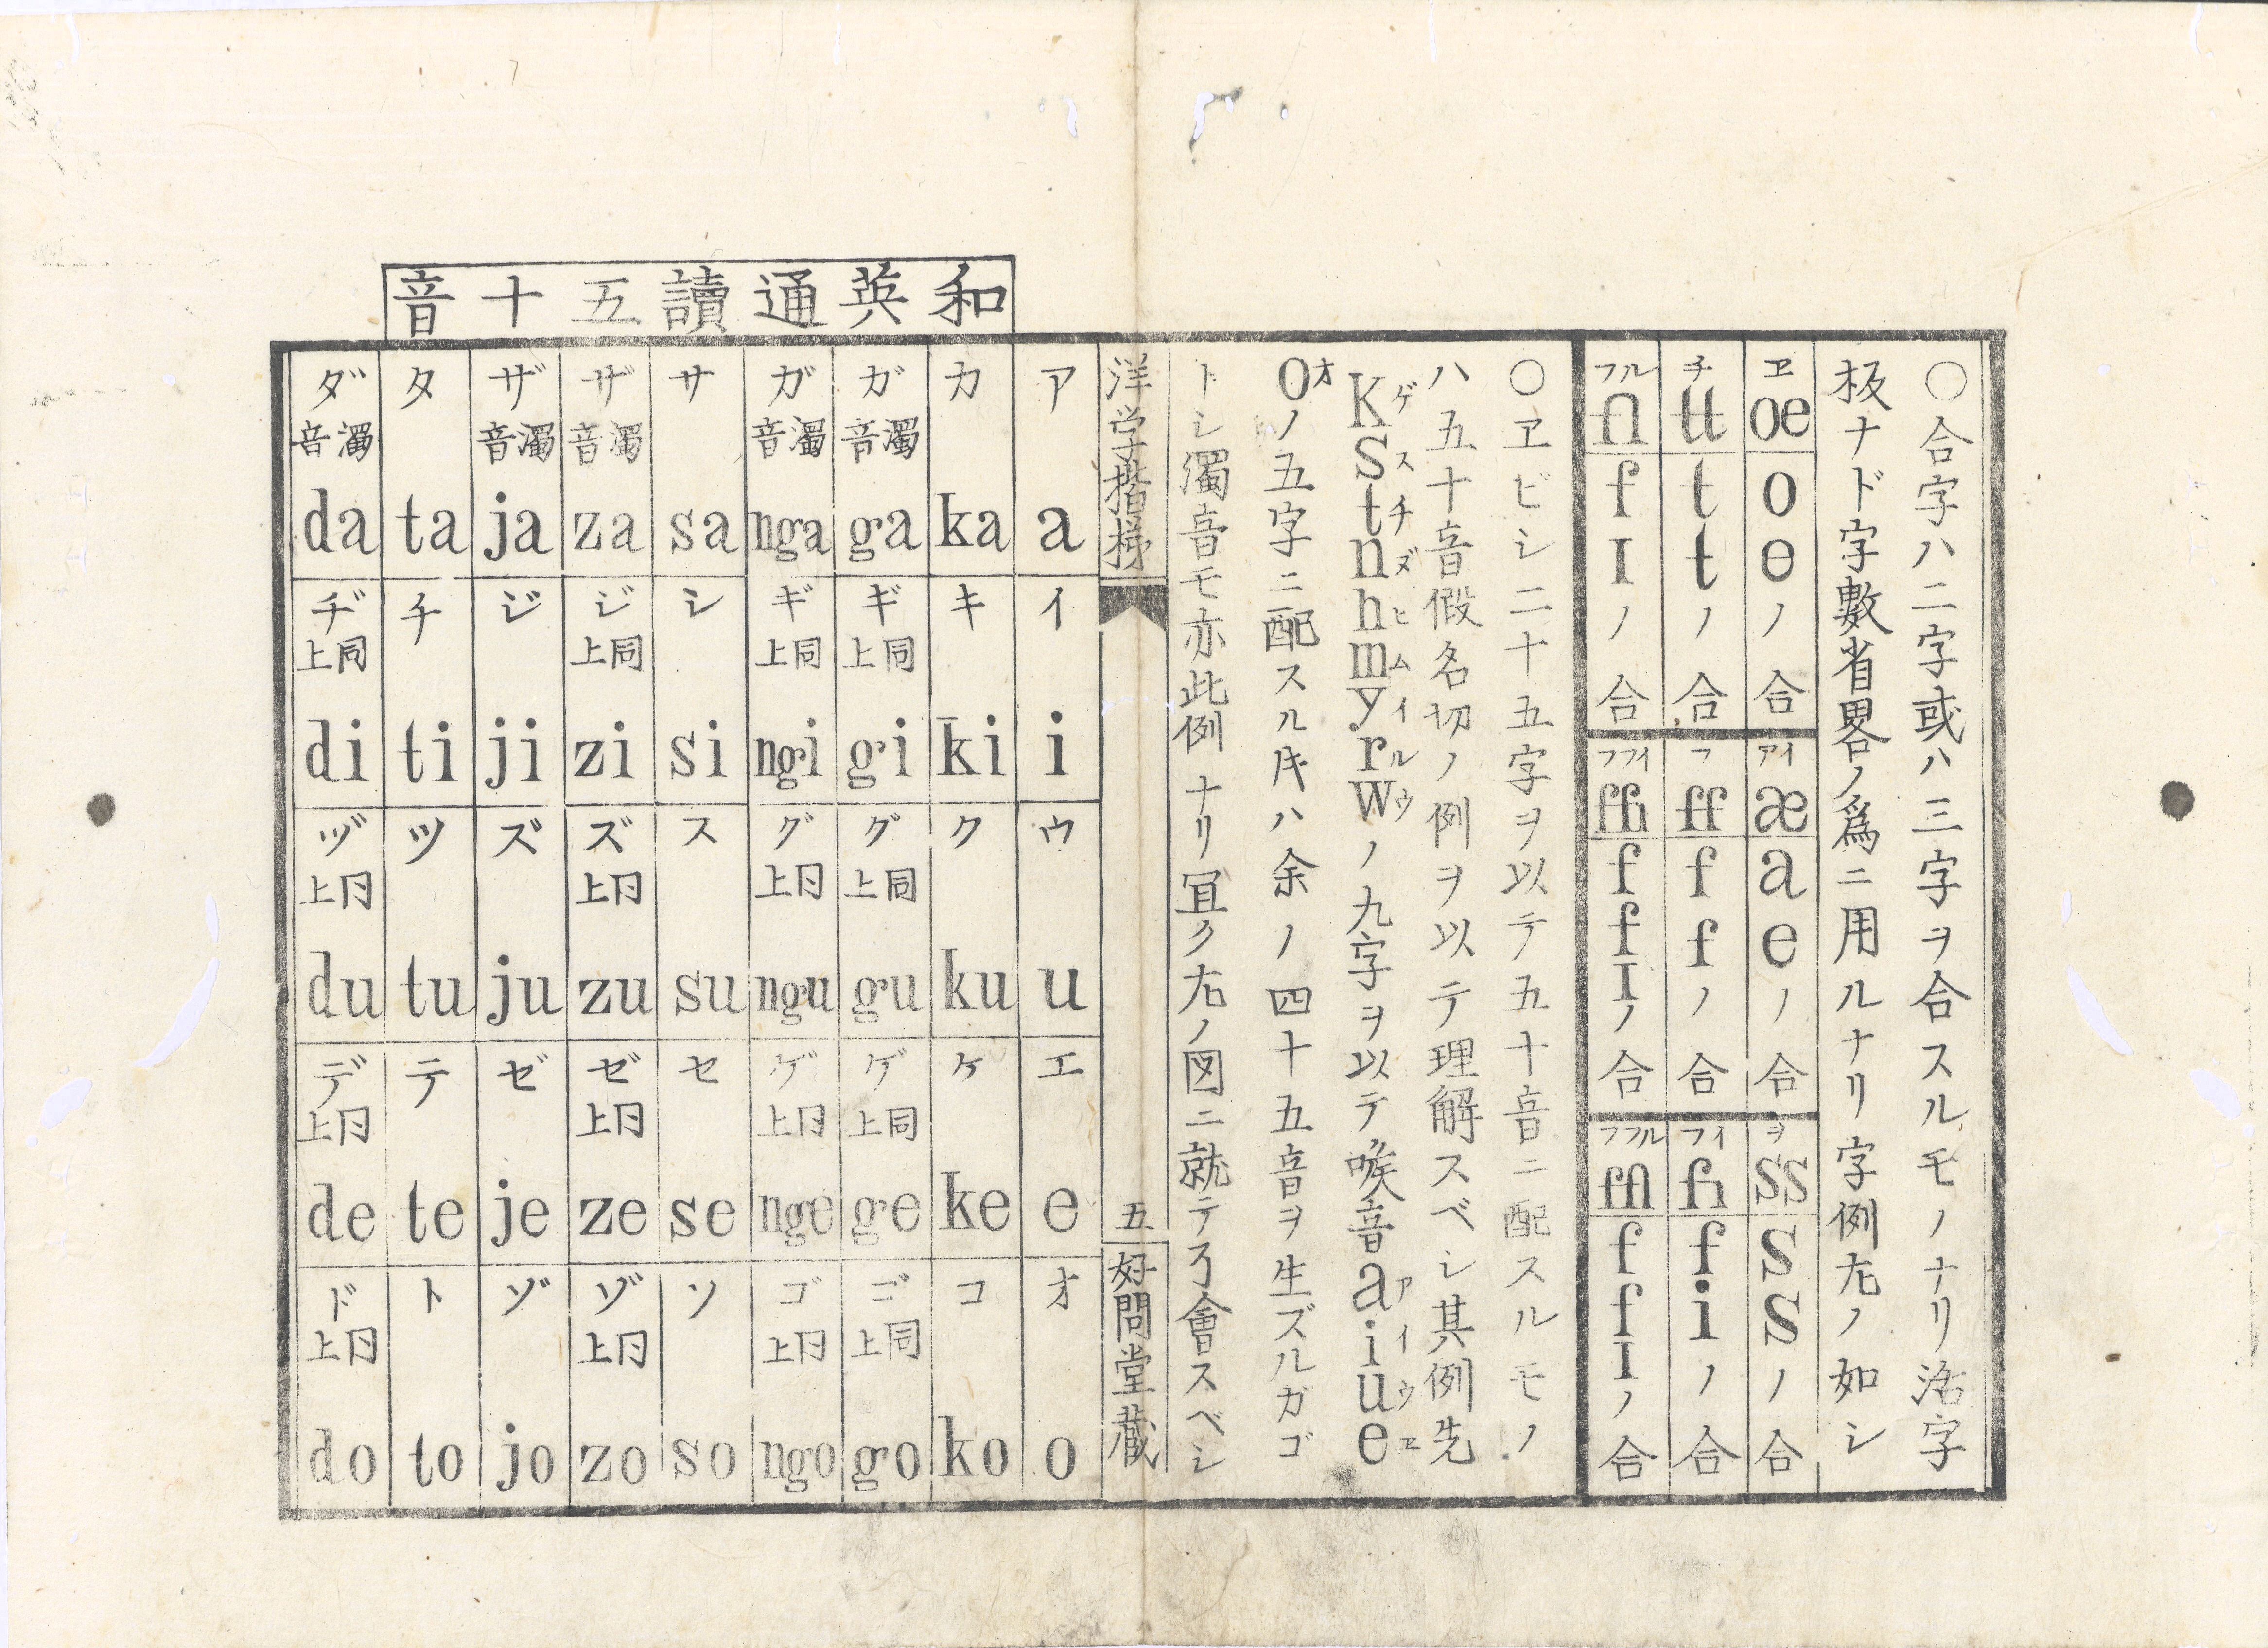 〇合字ハ二字或ハ三字ヲ合スルモノナリ活字
板ナド字數省畧ノ爲ニ用ルナリ字例左ノ如シ
ヱ œ o e ノ合
アイ æ a e ノ合
ヲ ss s s ノ合
チ tt t t ノ合
フ ff f f ノ合
フイ fi f i ノ合
フル fl f l ノ合
フフイ ffi f f I ノ合
フフル ffl f f I ノ合
〇ヱビシ二十五字ヲ以テ五十音ニ配スルモノ
ハ五十音假名切ノ例ヲ以テ理解スベシ其例先
K S t n h m y r w ノ九字ヲ以テ喉音 a i u e
ゲ ス チ ヌ ヒ ム イ ル ウ ア イ ウ ヱ
o ノ五字ニ配スル𪜈ハ余ノ四十五音ヲ生ズルガゴ
オ
トシ濁音モ亦此例ナリ冝ク左ノ図ニ就テ了會スベシ
洋学揩梯
五
好問堂蔵
和英通讀五十音
ア a イ i ウ u エ e オ o
カ ka キ ki ク ku ケ ke コ ko
ガ 濁音 ga ギ 同上 gi グ 同上 gu ゲ 同上 ge ゴ 同上 go
ガ 濁音 nga ギ 同上 ngi グ 同上 ngu ゲ 同上 nge ゴ 同上 ngo
サ sa シ si ス su セ se ソ so
ザ 濁音 za ジ 同上 zi ズ 同上 zu ゼ 同上 ze ゾ 同上 zo
ザ 濁音 ja ジ ji ズ ju ゼ je ゾ jo
タ ta チ ti ツ tu テ te ト to
ダ 濁音 da ヂ 同上 di ヅ 同上 du デ 同上 de ド 同上 do